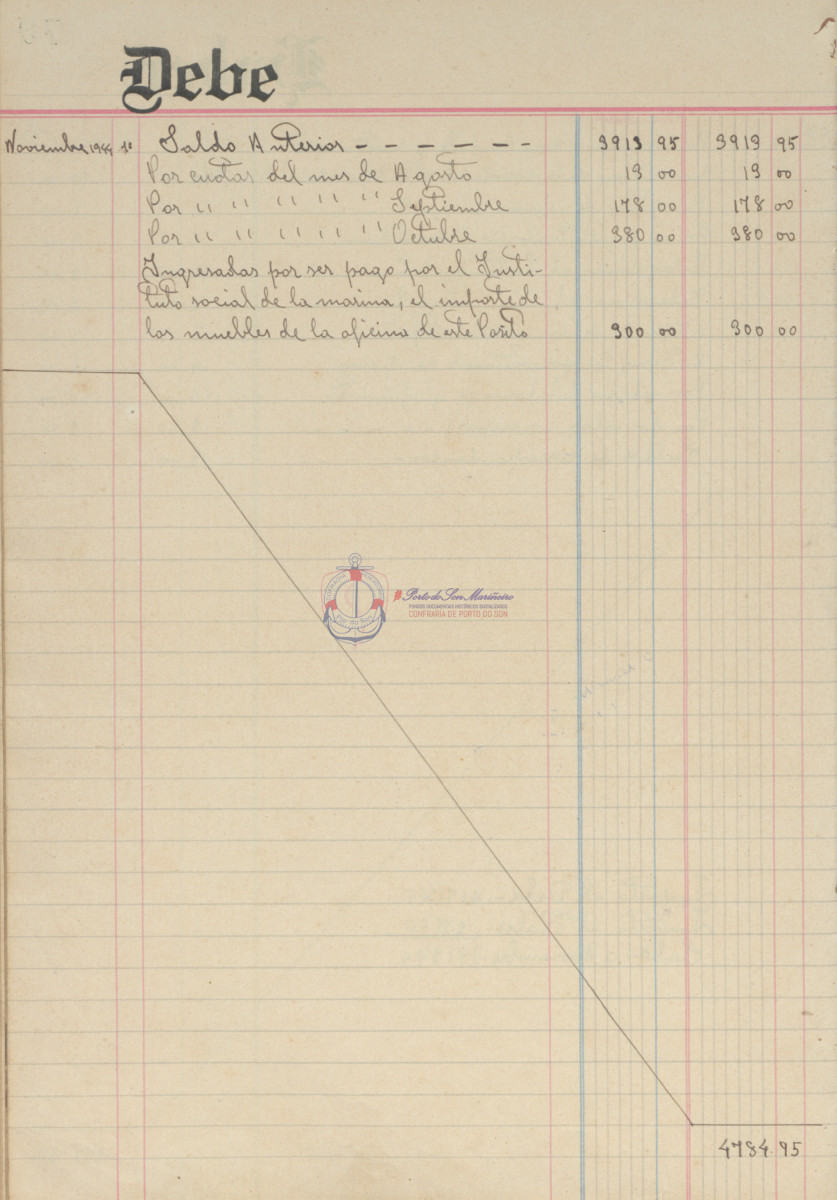 Debe
Noviembre 1944 1º Saldo Anterior - - - - - - 3913 95 3913 95
Por cuotas del mes de Agosto 13 00 13 00
Por " " " " " Septiembre 178 00 178 00
Por " " " " " Octubre 380 00 380 00
Ingresadas por ser pago por el Insti-
tuto social de la marina, el importe de
los muebles de la oficina de este Posito 300 00 300 00
#Porto do Son Mariñeiro
FONDOS DOCUMENTAIS HISTÓRICOS DIXITALIZADOS
CONFRARÍA DE PORTO DO SON
4784 95